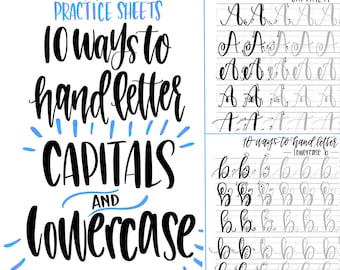 PRACTICE SHEETS
10 ways to
hand letter
CAPITALS
AND
lowercase
A A A A A A
A A A A A A
A A A A A A
A A A A A A
A A A A A A
10 ways to hand letter
lowercase b
b b b b b b
b b b b b b
b b b b b b
b b b b b b
b b b b b b